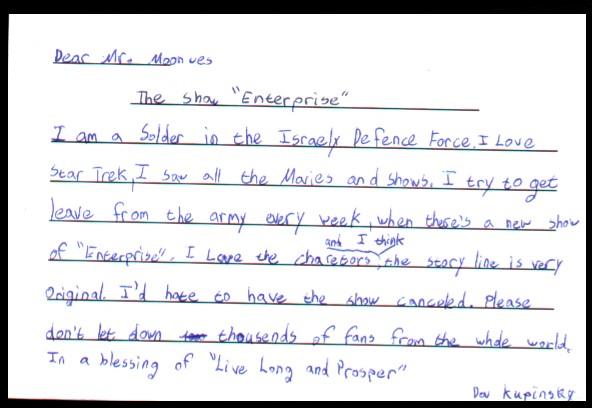 Dear Mr. Moonves
The show "Enterprise"
I am a Solder in the Israely Defence Force. I Love
Star Trek, I saw all the Movies and shows. I try to get
leave from the army every week, when there's a new show
and I think
of "Enterprise". I Love the charectors, the story line is very
Original. I'd hate to have the show canceled. Please
don't let down thousends of fans from the whole world.
In a blessing of "Live Long and Prosper"
Dov Kupinsky